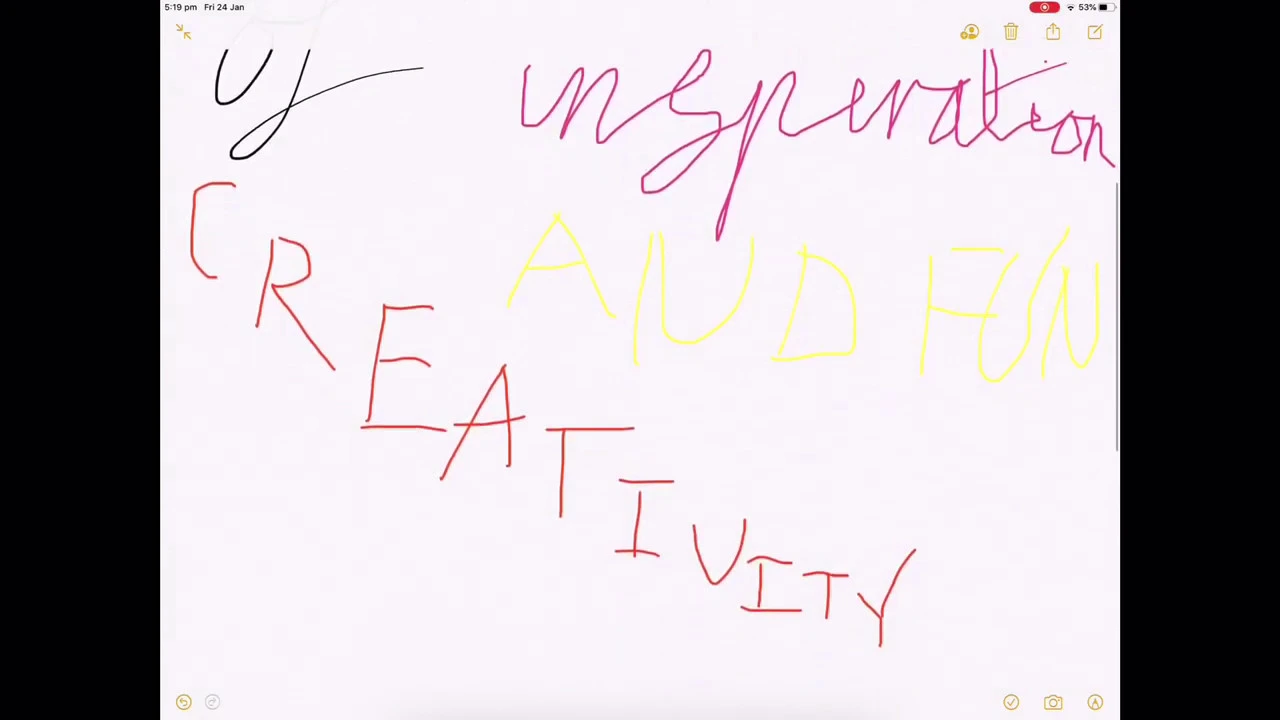 5:19 pm Fri 24 Jan
53%
insperation
AND FUN
CREATIVITY